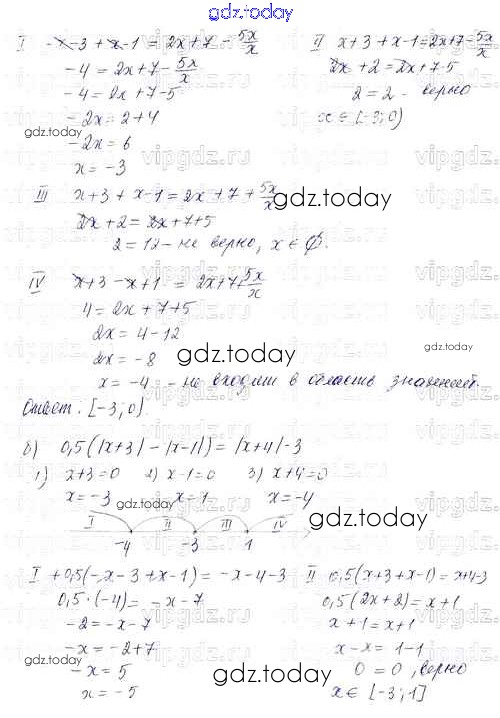 gdz.today
I -x-3+x-1=2x+7-5x/x
-4=2x+7-5x/x
-4=2x+7-5
-2x=2+4
-2x=6
x=-3
II x+3+x-1=2x+7-5x/x
2x+2=2x+7-5
2=2- верно
x∈[-3;0)
III x+3+x-1=2x+7+5x/x
2x+2=2x+7+5
2=12-не верно, x∈∅.
IV x+3-x+1=2x+7+5x/x
4=2x+7+5
2x=4-12
2x=-8
x=-4 - не входит в область значений.
Ответ: [-3;0).
б) 0,5(|x+3|-|x-1|)=|x+4|-3
1) x+3=0 2) x-1=0 3) x+4=0
x=-3 x=1 x=-4
I II III IV
-4 -3 1
I +0,5(-x-3+x-1)=-x-4-3
0,5·(-4)=-x-7
-2=-x-7
-x=-2+7
-x=5
x=-5
II 0,5(x+3+x-1)=x+4-3
0,5(2x+2)=x+1
x+1=x+1
x-x=1-1
0=0, верно
x∈[-3;1]
gdz.today
gdz.today
gdz.today
gdz.today
gdz.today
gdz.today
gdz.today
gdz.today
gdz.today